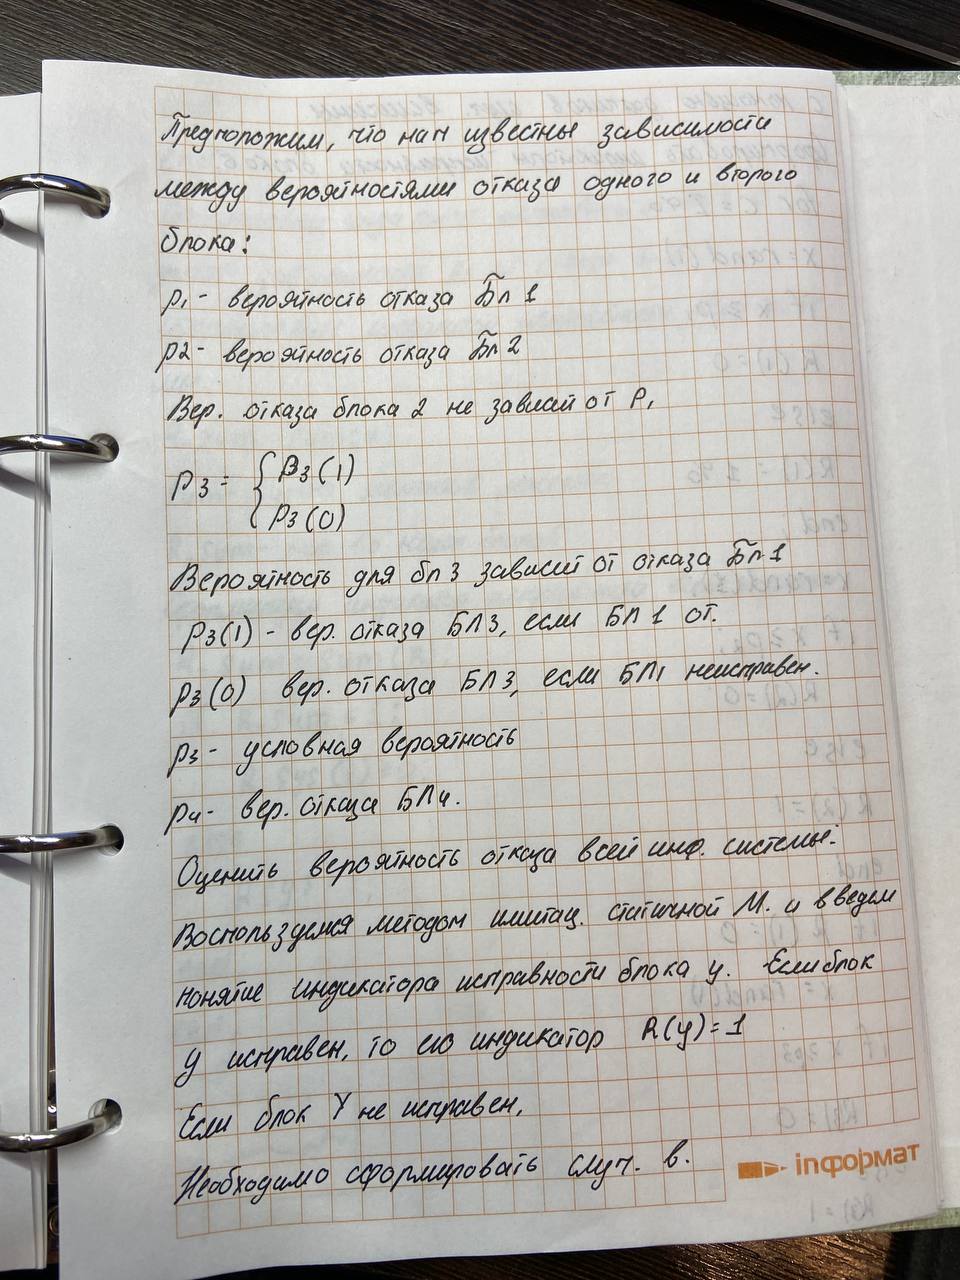 Предположим, что нам известны зависимости
между вероятностями отказа одного и второго
блока:
p1 - вероятность отказа Бл 1
p2 - вероятность отказа Бл 2
Вер. отказа блока 2 не зависит от P1
P3 = { P3(1)
P3(0)
Вероятность для бл 3 зависит от отказа Бл 1
P3(1) - вер. отказа БЛ3, если БЛ 1 от.
p3(0) вер. отказа БЛ3, если БЛ1 неисправен.
p3 - условная вероятность
p4 - вер. отказа БЛ4.
Оценить вероятность отказа всей инф. системы.
Воспользуемся методом имитац. статичной М. и введем
понятие индикатора исправности блока y. Если блок
y исправен, то его индикатор R(y) = 1
Если блок Y не исправен,
Необходимо сформировать случ. в.
inформат